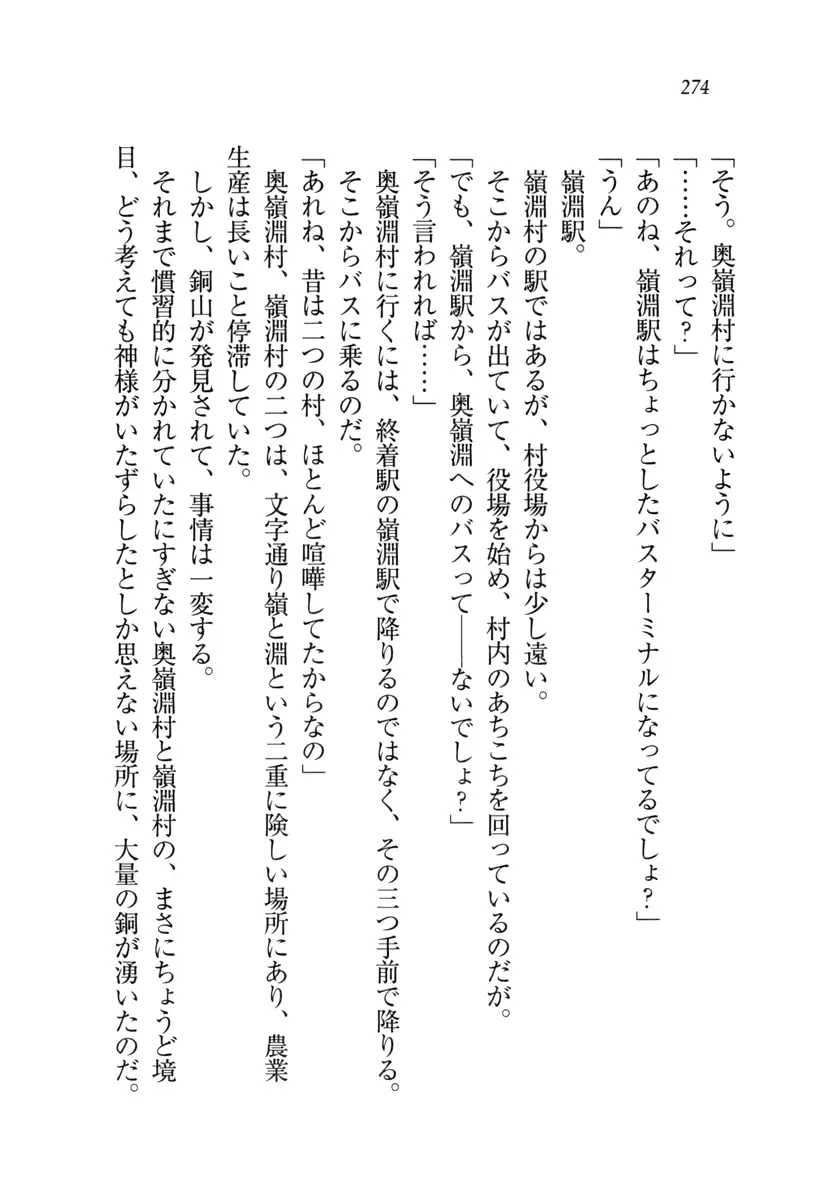 274
「そう。奥嶺淵村に行かないように」
「……それって？」
「あのね、嶺淵駅はちょっとしたバスターミナルになってるでしょ？」
「うん」
嶺淵駅。
嶺淵村の駅ではあるが、村役場からは少し遠い。
そこからバスが出ていて、役場を始め、村内のあちこちを回っているのだが。
「でも、嶺淵駅から、奥嶺淵へのバスって――ないでしょ？」
「そう言われれば……」
奥嶺淵村に行くには、終着駅の嶺淵駅で降りるのではなく、その三つ手前で降りる。
そこからバスに乗るのだ。
「あれね、昔は二つの村、ほとんど喧嘩してたからなの」
奥嶺淵村、嶺淵村の二つは、文字通り嶺と淵という二重に険しい場所にあり、農業
生産は長いこと停滞していた。
しかし、銅山が発見されて、事情は一変する。
それまで慣習的に分かれていたにすぎない奥嶺淵村と嶺淵村の、まさにちょうど境
目、どう考えても神様がいたずらしたとしか思えない場所に、大量の銅が湧いたのだ。